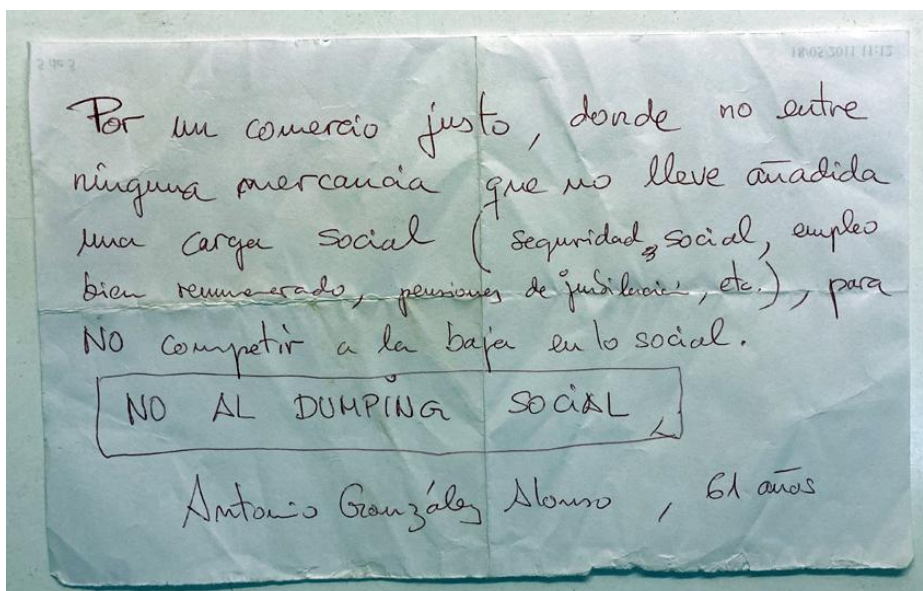 18/05/2011 11:12
3 de 3
Por un comercio justo, donde no entre
ninguna mercancia que no lleve añadida
una carga social (seguridad social, empleo
bien remunerado, pensiones de jubilación, etc.), para
NO competir a la baja en lo social.
NO AL DUMPING SOCIAL
Antonio González Alonso, 61 años